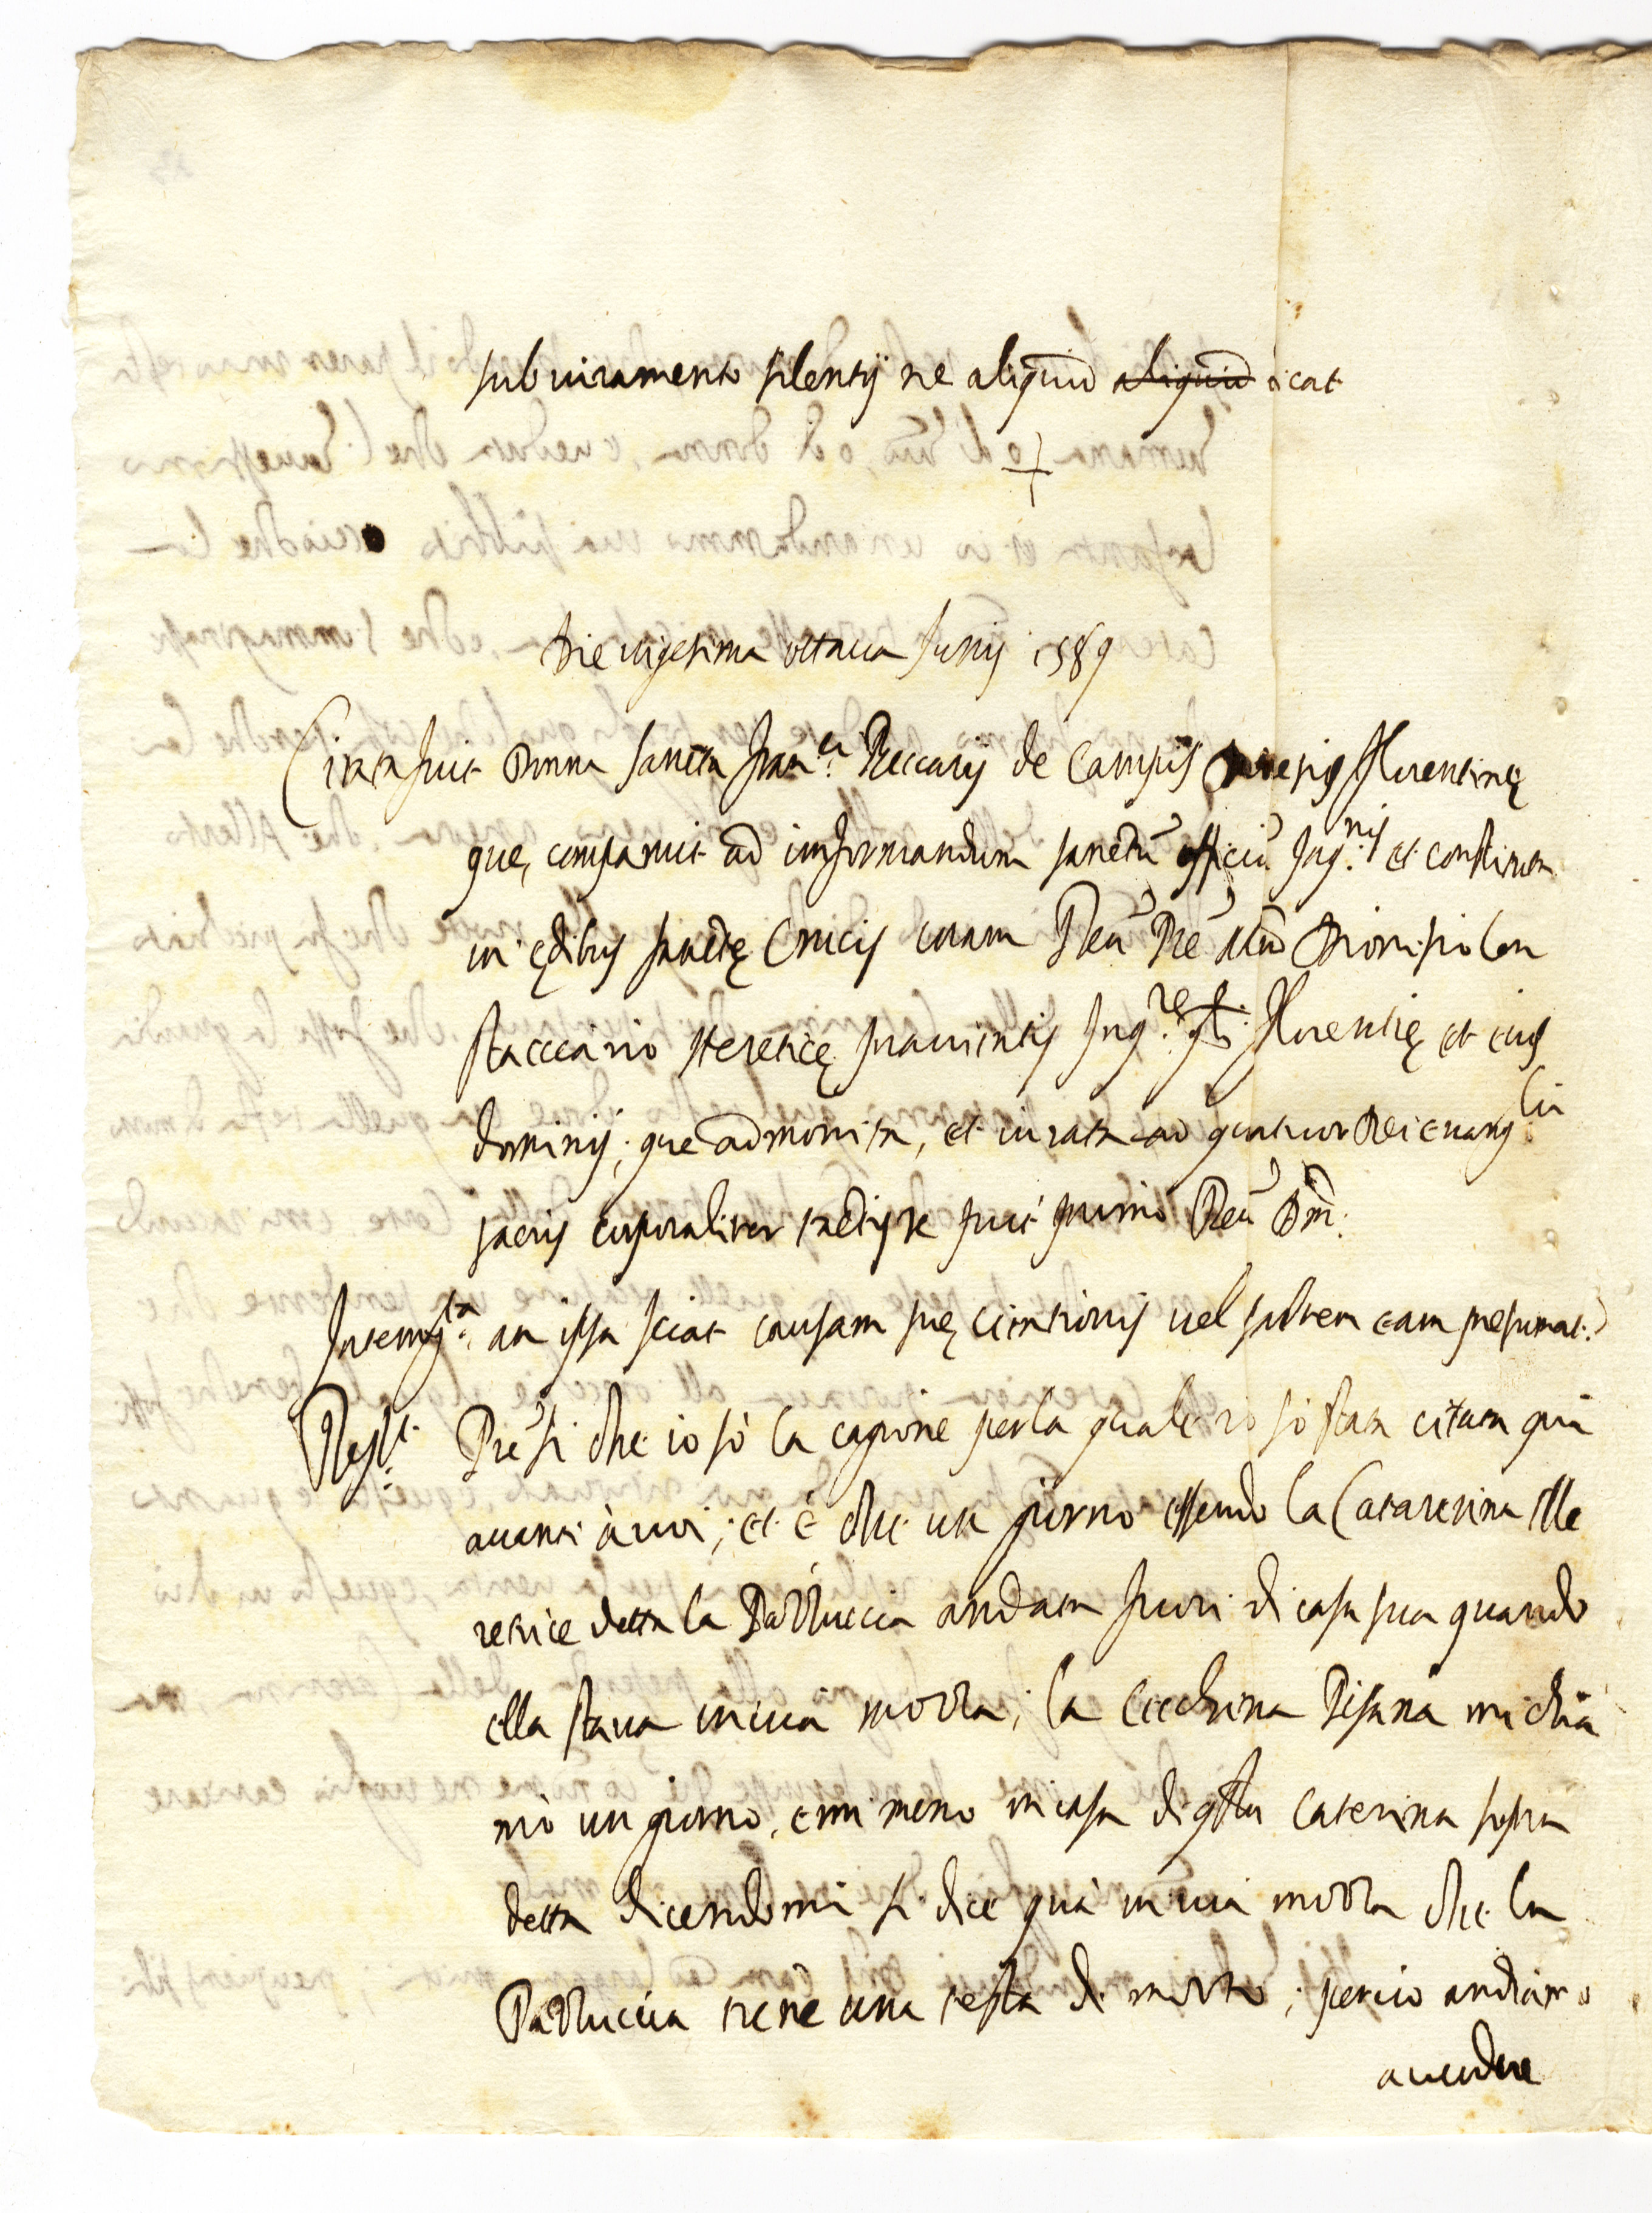 sub iuramento silentij ne aliquid aliquid dicat
Die vigesima ottaua Junij 1589
Citata fuit Donna Sancta Fran.ci Beccarij de Campis Florentinę
que, comparuit ad informandum sanctũ officiũ Inq.nis et constituta
in ędibus sanctę Crucis coram Reũ Pre Dionisio
staccario heretice prauitatis Inq.re Florentię et eius
dominij; que admonita, et iurata ad quatuor Dei euang.lia
sacris corporaliter tactis, fuit primo
Interrog.ta an ipsa sciat causam suę citationis uel saltem eam presumat.
Resp.t Pre si che io sò la cagione per la quale io sò stata citata quà
auanti à uoi; et è che un giorno essendo la Catarerina Me
retrice detta la Padduccia andata fuori di casa sua quando
ella staua in uia mozza; la Cecchina Pisana mi chia
mò un giorno, e mi meno in casa di qsta Caterina sopra
detta dicendomi si dice quà in uia mozza che la
Padduccia tiene una testa di morto; percio andiamo
a uedere